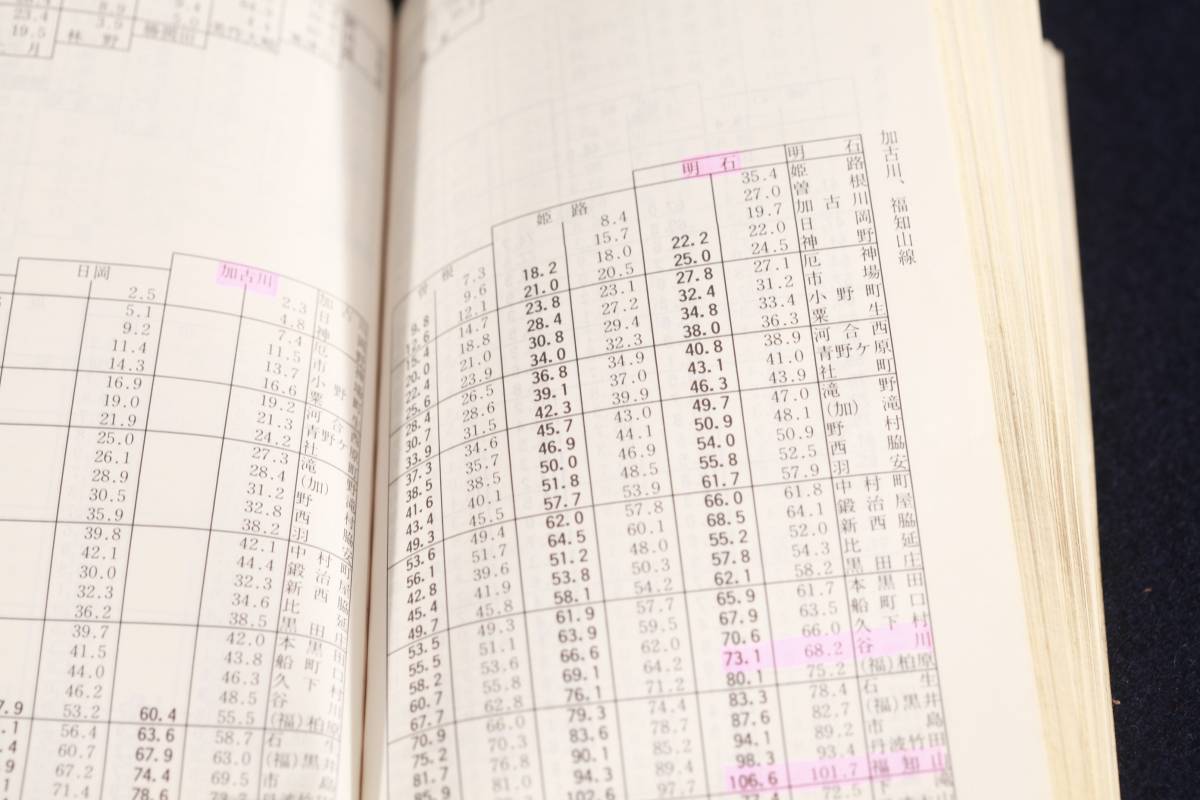 23.4 3.9
19.5 林 野
日岡 加古川
加古川
2.3 日岡
2.5 4.8 神野
5.1 7.4 厄神
9.2 11.5 市場
11.4 13.7 小野町
14.3 16.6 粟生
16.9 19.2 河合西
19.0 21.3 青野ケ原
21.9 24.2 社町
25.0 27.3 滝野
26.1 28.4 (加)滝
28.9 31.2 野村
30.5 32.8 西脇
35.9 38.2 羽安
39.8 42.1 中村町
42.1 44.4 鍛治屋
30.0 32.3 新西脇
32.3 34.6 比延
36.2 38.5 黒田庄
39.7 42.0 本黒田
41.5 43.8 船町口
44.0 46.3 久下村
46.2 48.5 谷川
53.2 60.4 55.5 (福)柏原
56.4 63.6 58.7 石生
60.7 67.9 63.0 (福)黒井
67.2 74.4 69.5 市島
71.4 78.6
加古川、福知山線
曽根 姫路 明石
明石
35.4 姫路
8.4 27.0 曽根
7.3 15.7 19.7 加古川
9.8 9.6 18.2 18.0 22.2 22.0 日岡
12.6 12.1 21.0 20.5 25.0 24.5 神野
15.4 14.7 23.8 23.1 27.8 27.1 厄神
20.0 18.8 28.4 27.2 32.4 31.2 市場
22.4 21.0 30.8 29.4 34.8 33.4 小野町
25.6 23.9 34.0 32.3 38.0 36.3 粟生
28.4 26.5 36.8 34.9 40.8 38.9 河合西
30.7 28.6 39.1 37.0 43.1 41.0 青野ケ原
33.9 31.5 42.3 39.9 46.3 43.9 社町
37.3 34.6 45.7 43.0 49.7 47.0 滝野
38.5 35.7 46.9 44.1 50.9 48.1 (加)滝
41.6 38.5 50.0 46.9 54.0 50.9 野村
43.4 40.1 51.8 48.5 55.8 52.5 西脇
49.3 45.5 57.7 53.9 61.7 57.9 羽安
53.6 49.4 62.0 57.8 66.0 61.8 中村町
56.1 51.7 64.5 60.1 68.5 64.1 鍛治屋
42.8 39.6 51.2 48.0 55.2 52.0 新西脇
45.4 41.9 53.8 50.3 57.8 54.3 比延
49.7 45.8 58.1 54.2 62.1 58.2 黒田庄
53.5 49.3 61.9 57.7 65.9 61.7 本黒田
55.5 51.1 63.9 59.5 67.9 63.5 船町口
58.2 53.6 66.6 62.0 70.6 66.0 久下村
60.7 55.8 69.1 64.2 73.1 68.2 谷川
67.7 62.8 76.1 71.2 80.1 75.2 (福)柏原
70.9 66.0 79.3 74.4 83.3 78.4 石生
75.2 70.3 83.6 78.7 87.6 82.7 (福)黒井
81.7 76.8 90.1 85.2 94.1 89.2 市島
85.9 81.0 94.3 89.4 98.3 93.4 丹波竹田
102.6 97.7 106.6 101.7 福知山